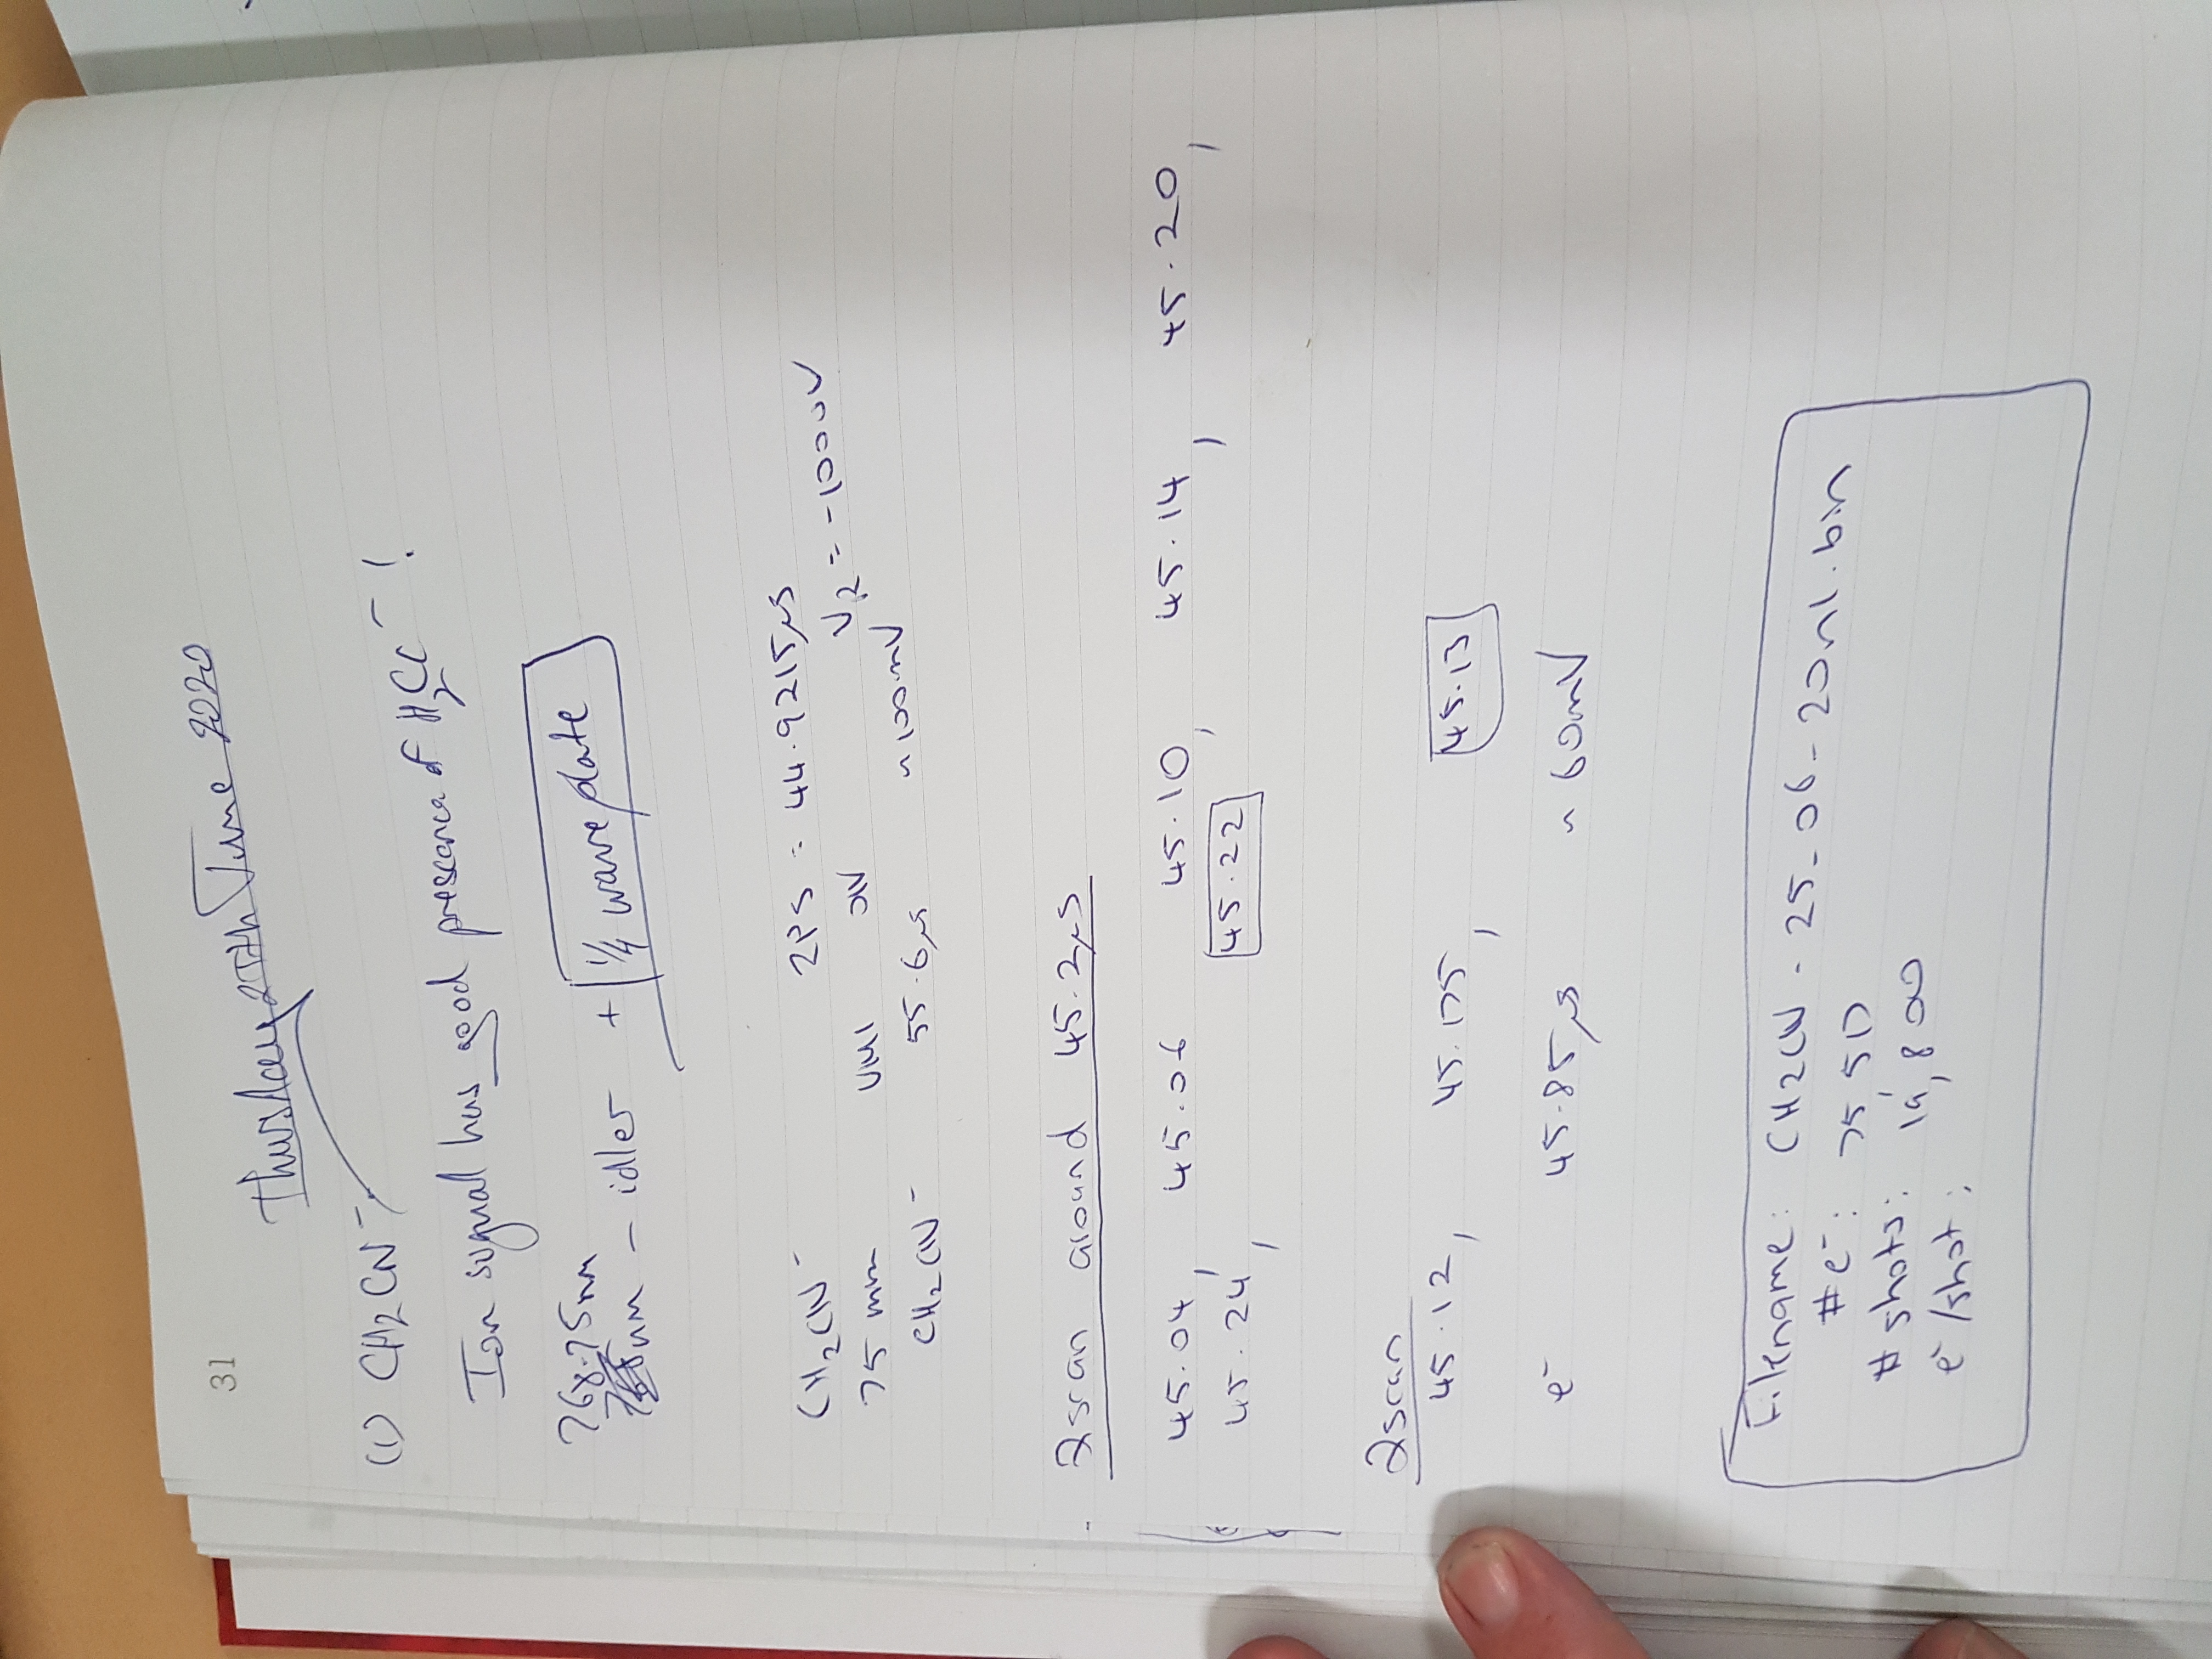 31
Thursday 25th June 2020
(1) CH2CN⁻
Ion signal has good prescence of H₂CC⁻ !
768.75nm
nm – idler + 1/4 wave plate
CH₂CN⁻ 2PS = 44.9215μs
75 mm VMI ON V_R = -1000V
CH₂CN⁻ 55.6μs ~100mV
2scan around 45.2μs
45.04, 45.06 45.10, 45.14, 45.20,
45.24, 45.22
2scan
45.12, 45.175, 45.13
e⁻ 45.85μs ~ 60mV
Filename: CH2CN - 25-06-20n1.bin
#e⁻: 75,517
# shots: 19,800
e⁻/shot: